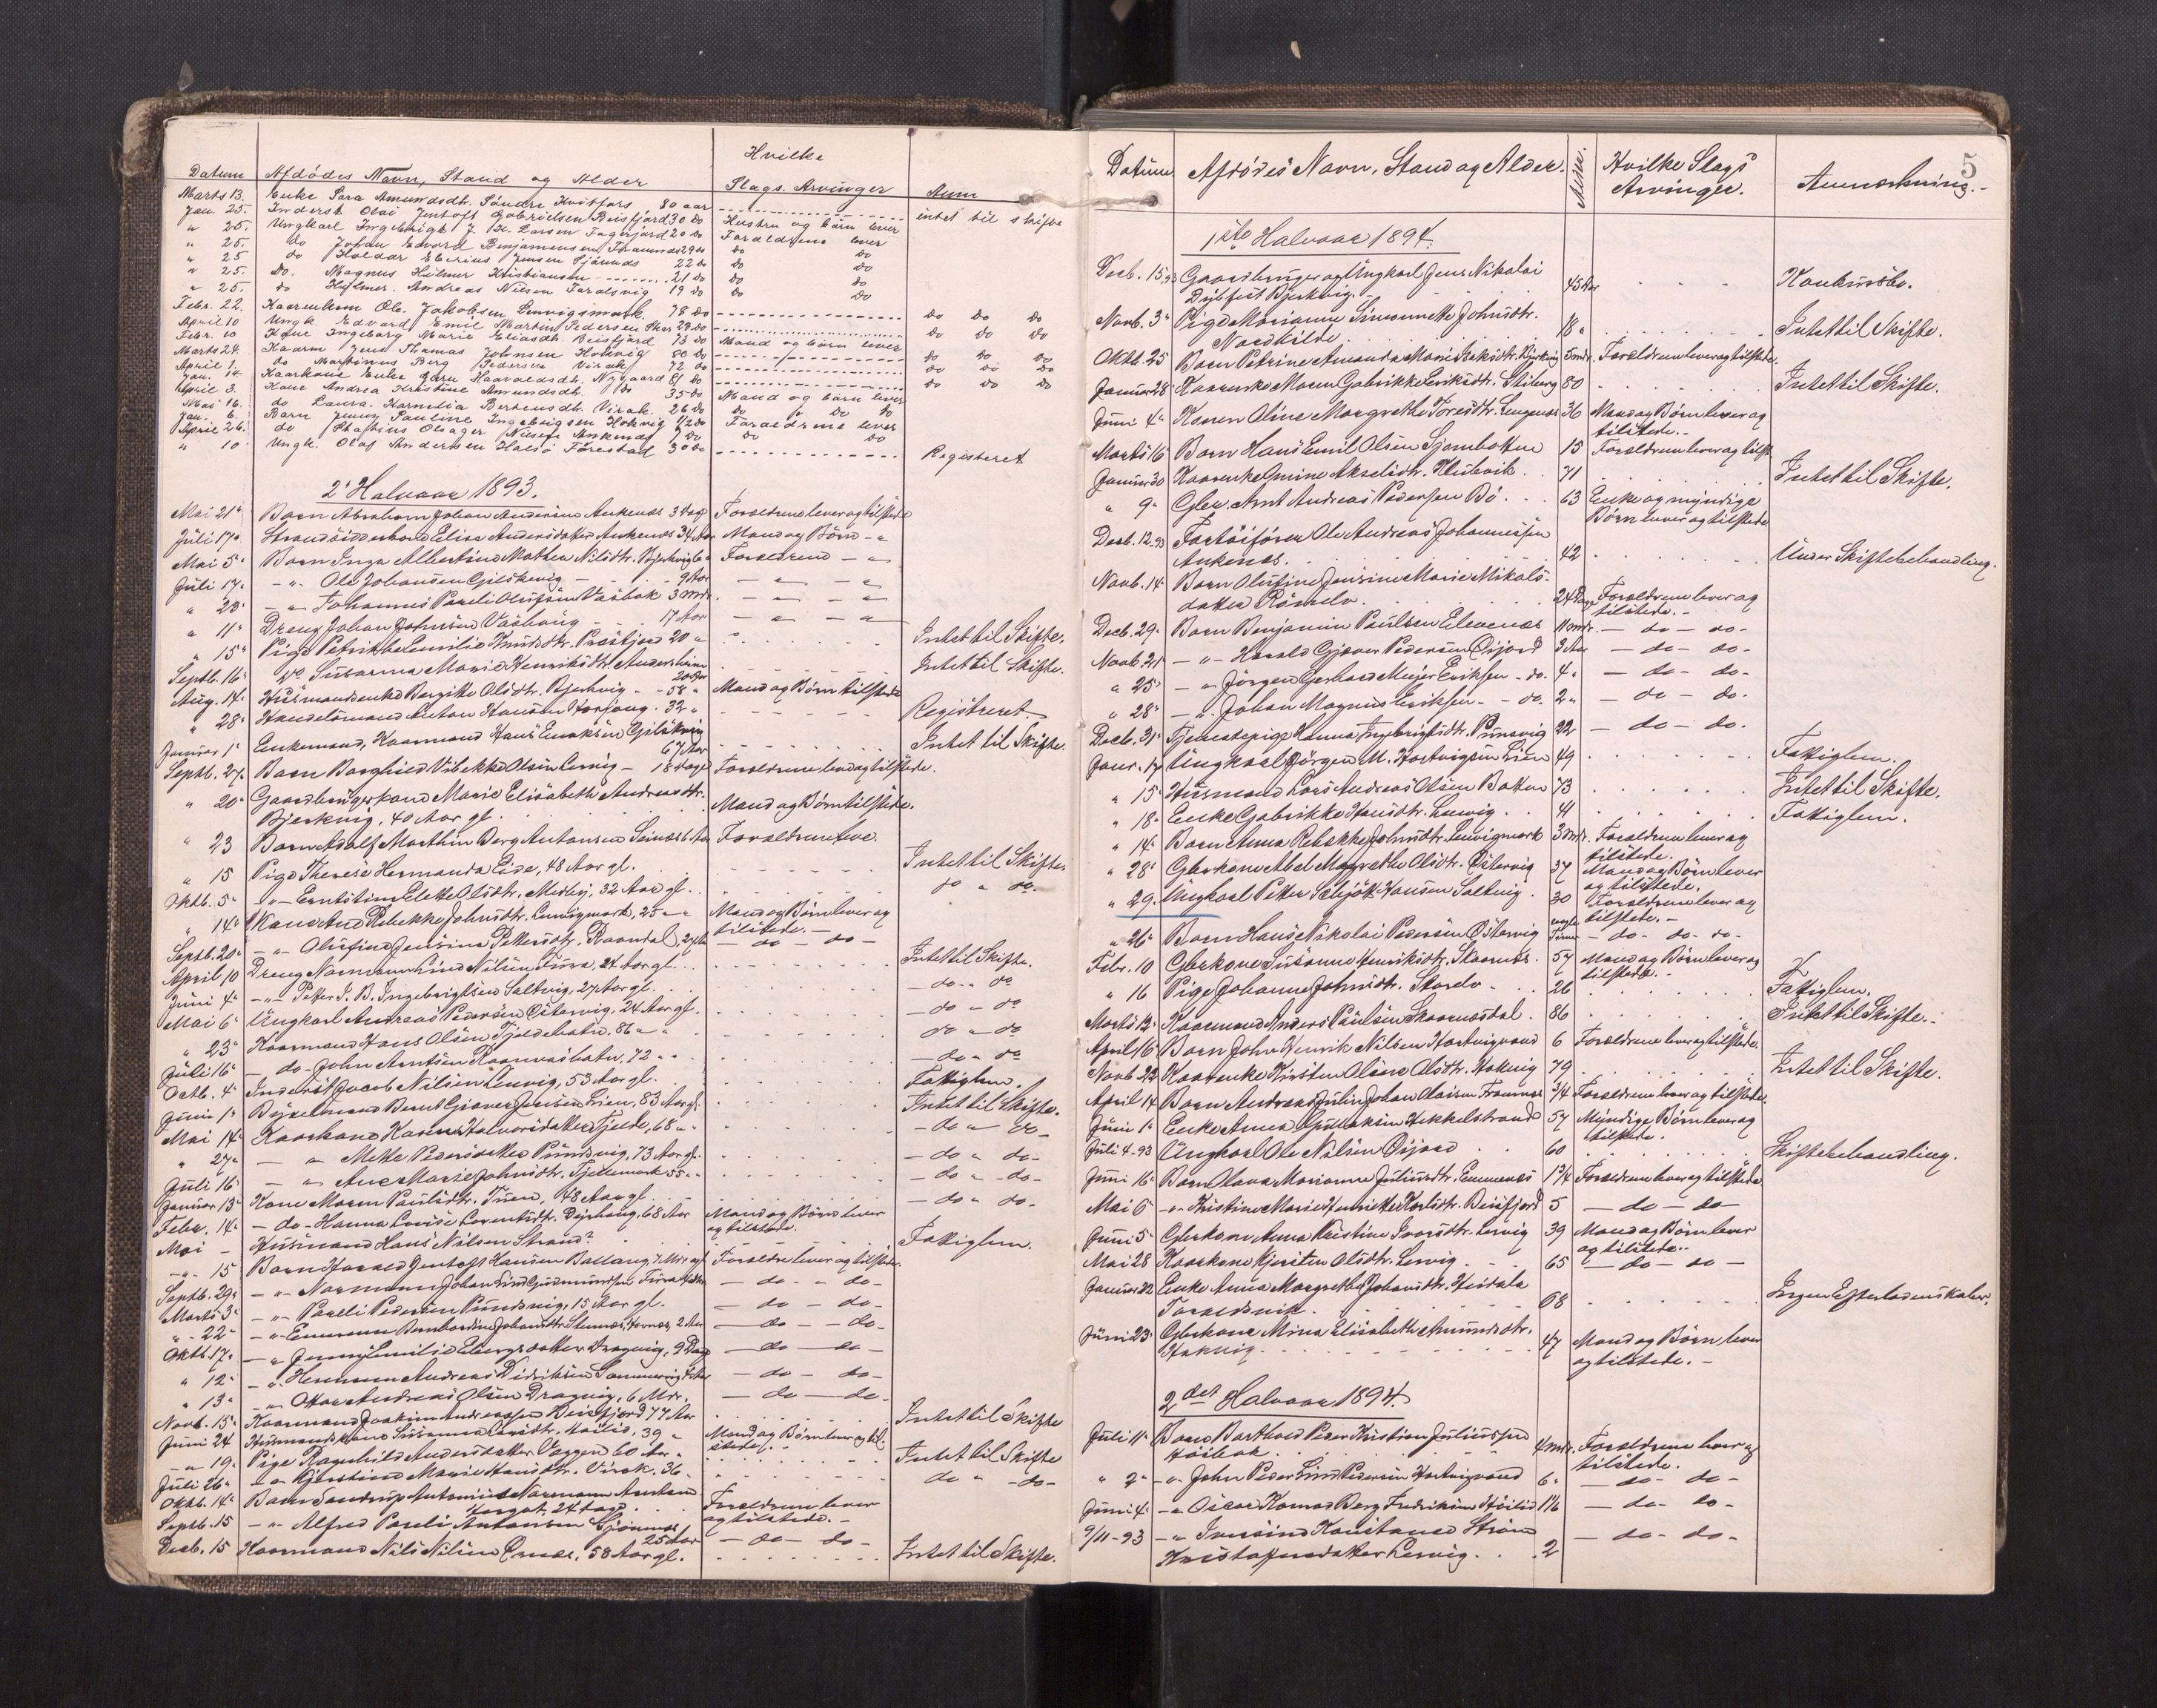 Hvilke
Datum Afdödes Navn, Stand og Alder Slags Arvinger Anm
Marts 13. Enke Sara Amundsdt. Söndre Kvitfors 80 aar intet til skifte
Jan. 25. Inderst Olai Jentoft Gabrielsen Beisfjord 30 do Hustru og börn lever
" 25. Ungkarl Ingebrigt J. K. Larsen Fagerjord 20 do Foraldrene lever
" 25. do Johan Edvard Benjaminsen 29 do do do
" 25 do Haldor Eberius Jensen Sjånnds 22 do do do
" 25. do. Magnus Hilmer Kristiansen 21 do do do
" 25. do Hilmer Andreas Nilsen Taralsvig 19 do do do
Febr. 22. Kaarenkom Ole Jakobsen Lenvigsmark 78 do do do do
April 10 Ungk Edvard Emil Martin Pedersen 29 do do do do
Febr. 10 Kone Ingeborg Marie Eliasdt. Beisfjord 73 do Mand og börn lever
Marts 24. Kaarm Jens Thomas Johnsen Hokvig 80 do do do do
April 1. do Martinus Berg Pedersen Virak 72 do do do do
Jan. 14 Kaarkone Enke Haavaldsdt. Nygaard 81 do do do do
April 3. Kone Andrea Kristine Amundsdt. do 35 do Mand og börn lever
Mai 16. do Laura Kornelia Berensdt. Virak 26 do do do do
Jan. 6. Barn Jenny Pauline Ingebrigsen Hokvig 1/2 do Foraldrene lever
April 26. do Olsager Nilsen Ankenes 1 do do do
" 10 Ungk. Olaf Andersen Halsö Förestad 30 do Registeret
2' Halvaar 1893.
Mai 21" Barn Abraham Johan Andersen Ankenes 3 Dage Forældrene lever og tilstede
Juli 17" Elise Andersdatter Ankenes 34 Aar Mand og Börn - "
Mai 5" Barn Inga Albertine Mathea Nilsdtr. Bjerkvig 6 " Forældrene - "
Juli 17. - " - Ole Johansen Gjeldkevig - 9 Aar - " - "
" 23" - " Johannes Pareli Olufsen Vasbak 3 Mdr. - " - "
" 11" Dreng Johan Johnsen Vashaug - 17 Aar - " - "
" 15" Pige Petrikke Emilie Knudsdtr. 20 " Intet til Skifte.
Septb. 16" do Susanna Marie Henriksdtr. 20 Aar Intet til Skifte.
Aug. 14. Husmandsenke Bergitte Olsdtr. Bjerkvig - 58 " Mand og Börn tilstede
" 28" Handelsmand Anton Hansen 32 " Registreret
Januar 1" Enkemand, Kaarmand Hans Enoksen 67 Aar Intet til Skifte.
Septb. 27. Barn Borghild Vibekke Olsen Lervig - 18 Dage Forældrene lever og tilstede.
" 20" Gaardbrugerkone Marie Elisabeth Andreasdtr.
Bjerkvig, 40 Aar gl. Mand og Börn tilstede.
" 23 Barn Adolf Marthin Berg Antonsen Forældrene leve.
" 15 Pige Therese Hermanda Eide, 48 Aar gl. Intet til Skifte
Oktb. 5" - " - Ernstine Elette Olsdtr. Medby, 32 Aar gl. do " do.
" 14" Kone Ane Rebekke Johnsdtr. Lenvigmark, 25 " " Mand og Börn lever og
tilstede. -
Septb. 20" - " Olufine Jensine Pettersdtr. Raandal, 27 - do - do -
April 10 Dreng Normann Lind Nilsen Tura, 24 Aar gl. Intet til Skifte.
Juni 4" - " - Petter J. B. Ingebrigtsen Saltvig, 27 Aar gl. - do - do
Mai 6" Ungkarl Andreas Pedersen Östervig, 24 Aar gl. - do - do
" 23" Kaarmand Hans Olsen Fjeldebatn, 86 " " do " do
Juli 16" - do - John Arntsen 72 " " - do " do
Octb. 4" Inderst Jacob Nilsen Lenvig, 53 Aar gl. Fattiglem.
Juni 1" Bernt Gjæver Jensen Lien, 83 Aar gl. Intet til Skifte.
Mai 14" Kaarkone Karen Halvorsdatter Fjelde, 68 " " - do " do -
" 27" - " Mette Pedersdatter Pundsvig, 73 Aar gl. - do " do -
Juli 16" - " Ane Marie Johnsdtr. Fjellemark 55 " " - do " do -
Januar 13" Kone Maren Paulsdtr. Tuen, 48 Aar gl - do " do.
Febr. 14" - do - Hanna Lovise Lorentsdtr. Dyrhaug, 68 Aar Mand og Börn lever
og tilstede.
Mai - Husmand Hans Nilsen Strand? Fattiglem.
- " 15 Barn Harald Jentoft Hansen Ballang, 7 Mdr. gl. Forældre lever og tilstede.
Septb. 29" - " - Normann Johan Lind Gudmundsen - do - " do -
Marts 3" - " - Pareli Pedersen Pundsvig, 15 Aar gl. - do - do -
" - 22" - " 2 Aar - do - - do -
Oktb. 17" - " Jenny Emilie Dragvig, 9 Dage - do - do -
" 12" - " Hermann Andreas Didriksen - do - do -
" 13" - " Othar Andreas Olsen Dragvig, 6 Mdr. - do - do -
Novb. 15" Kaarmand Joakim Andreassen Beisfjord 77 Aar Intet til Skifte
Juni 24 Husmandskone Susanna Larsdtr. 39 " Mand og Börn lever og til-
stede. -
- " 19. Pige Ragnhild Andersdatter Vaggen 60 Aar. Intet til Skifte
Juli 26" - " Kjerstine Marie Hansdtr. Virak. 36 " do " - do -
Oktb. 14" Barn Sandrup Antonius Normann
24 Dage Forældrene lever
og tilstede. -
Septb. 15 - " - Alfred Pareli Antonsen 25 Aar - do - do -
Decb. 15 Kaarmand Nils Nilsen Ernæs, 58 Aar gl. Intet til Skifte.
5
Datum Afdödes Navn, Stand og Alder. Alder. Hvilke Slags
Arvinger. Anmærkning. -
1ste Halvaar 1894.
Decb. 15, 93 Gaardbruger og Ungkarl Jens Nikolai
Dybfest Bjerkvig. - 45 Aar Konkursbo.
Novb. 3" Pige Marianne Simonette Johnsdtr.
Nordkilde 18 " Intet til Skifte.
Oktb. 25 Barn Petrine Amanda Marie Bjerkvig 5 mdr. Forældrene lever og tilstede.
Januar 28" Kaarenke Maren Gabrikke Eriksdtr. Stiberg 80 Intet til Skifte.
Juni 4" Konen Oline Margrethe Toresdtr. Lengenes 36 Mand og Börn lever og
tilstede. -
Marts 16 Barn Hans Emil Olsen Sjombotten 15 Forældrene lever og tilst.
Januar 30 Kaarenke Gunine Akselsdtr. Klubvik 71 Intet til Skifte.
" 9" Gbr. Arnt Andreas Pedersen Bö 63 Enke og myndige
Börn lever og tilstede
Decb. 12-93 Fartöiförer Ole Andreas Johannessen
Ankenes. 42 Under Skiftebehandling.
Novb. 14" Barn Olufine Jensine Marie Nikols-
datter Römelv 24 Dage Forældrene lever og
tilstede. -
Decb. 29" Barn Benjamin Paulsen Elvenæs 11 mdr. - do - do -
Novb. 21" - " - Harald Gjæver Pedersen Öijord 3 Aar - do - do -
" 25" - " Jörgen Gerhard Meyer Eriksen - do. 4 " - do - do -
" 28" - " Johan Magnus Eriksen - - do. 2 " - do - do.
Decb. 31" Tjenestepige Hanna Ingebrigtsdtr. Punsvig 22 - do - do.
Janr. 17 Ungkarl Jörgen M. Hartvigsen Lien 49 Fattiglem.
" 15" Husmand Lars Andreas Olsen Botten 73 Intet til Skifte.
" 18" Enke Gabrikke Hansdtr. Lervig 41 Fattiglem.
" 14" Barn Anna Rebekke Johnsdtr. Lenvigmark 3 mdr. Forældrene lever og
tilstede.
" 28" Gbrkone Abel Magrethe Olsdtr. Östervig 37 Mand og Börn lever
og tilstede.
" 29. Ungkarl Peter Schjött Hansen Saltvig 30 Forældrene lever og
tilstede. -
" 26" Barn Hans Nikolai Pedersen Östervig - do - do - do -
Febr. 10 Gbrkone Susanne Henriksdtr. Skarnes 57 Mand og Börn lever og
tilstede. -
" 16 Pige Johanna Johnsdtr. Storelv 26 Fattiglem.
Marts 12" Kaarmand Anders Paulsen Skarnesdal 86 Intet til Skifte. -
April 16 Barn John Henrik Nilsen Hartvigvand 6 Forældrene lever og tilstede.
Novb. 22 Kaarenke Kirsten Olsdtr. Hokvig 79 Intet til Skifte.
April 14 Barn Andreas Julin Johan Olaisen Framnæs 3/4 Forældrene lever og tilstede.
Juni 1" Enke Anna Gullaksen Hekkelstrand 57 Myndige Börn lever og
tilstede.
Juli 4-93 Ungkarl Ole Nilsen Öijord 60 Skiftebehandling.
Juni 16" Barn Olava Marianne Juliusdtr. Emmenes 1 3/4 Forældrene lever og tilstede
Mai 6" - " Kristine Marie Henriette Karlsdtr. Beisfjord 5 - do - do -
Juni 5" Gbrkone Anna Kristine Ivarsdtr. Lervig 39 Mand og Börn lever
og tilstede. -
Mai 28 Kaarkone Kjersten Olsdtr. Lervig 65 - do - do -
Januar 22 Enke Anna Margrethe Johansdtr. Heidala
Taraldsvik 68 Ingen Efterladenskaber.
Juni 23" Gbrkone Mina Elisabeth Amundsdtr.
Hokvig 47 Mand og Börn lever
og tilstede. -
2det Halvaar 1894.
Juli 11" Barn Barthold Peder Kristian Juliussen
Höibak 4 mdr. Forældrene lever og
tilstede.
" 2" - " John Peder Lind Pedersen Hartvigvand 6 " - do - do -
Juni 4" - " Oscar Konrad Berg Fredriksen 1 1/6 - do - do -
9/11-93 - " Jensine Konstance Ström
Kristofersdatter Lervig 2 - do - do -